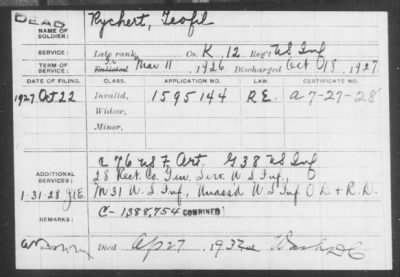 DEAD
NAME OF SOLDIER: Rychert, Teofil
SERVICE: Late rank, Co. K, 12 Reg't US Inf
TERM OF SERVICE: Enlisted Mar 11, 1926 Discharged Oct 18, 1927
DATE OF FILING. CLASS. APPLICATION NO. LAW. CERTIFICATE NO.
1927 Oct 22 Invalid, 1595144 R.E. a 7-27-28
Widow,
Minor,
76 US F Art, G 38 US Inf
ADDITIONAL SERVICES: 28 Rect. Co. Gen. Serv. U.S. Inf,
1-31-28 M 31 U.S. Inf, Unassd U.S. Inf O.D. + R.D.
REMARKS: C-1388,754 COMBINED
Died Apr 27, 1932 at Wash DC